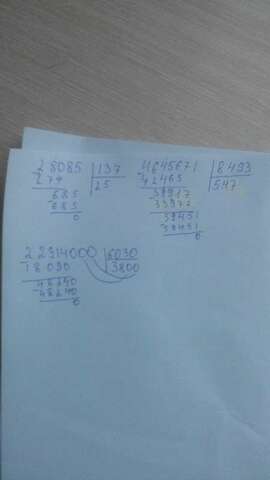 28085 | 137
274 | 25
685
685
0
4645671 | 8493
42465 | 547
39917
33972
59451
59451
0
22914000 | 6030
18090 | 3800
48240
48240
0